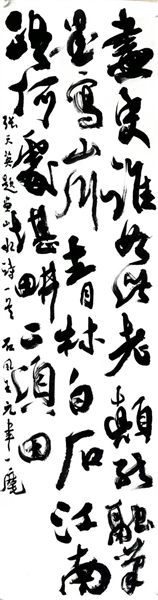 畫史誰如此老顛能融筆
墨寫山川青林白石江南
路何處堪畊二頃田
張天英題畫山水詩一首 石風王九